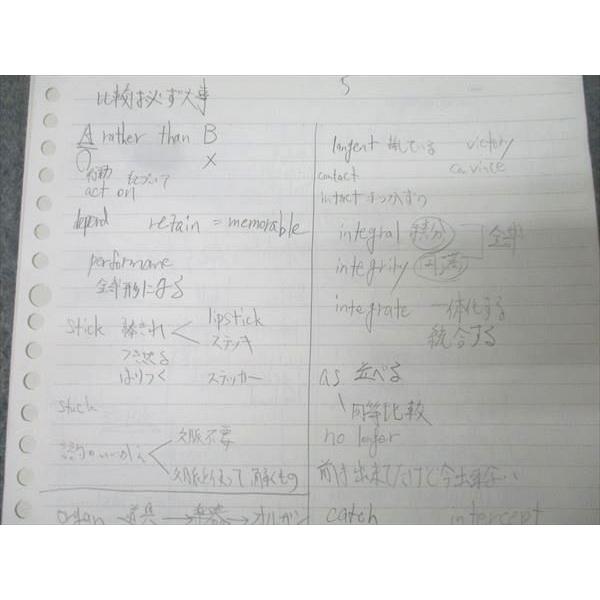 比較は必ず大事
A rather than B
○ ×
行動 に基づいて
act on
depend retain = memorable
performane
全部形にする
stick 棒きれ lipstick
ステッキ
つき刺る
はりつく ステッカー
stick
語のいいかえ
文脈不要
文脈を使って解くもの
organ 道具 → 楽器 → オルガン
5
tangent 接している victory
contact convince
intact 手つかずの
integral 積分 全部
integrity
integrate 一体化する
統合する
as 並べる
同等比較
no longer
前は出来てたけど今出来ない
catch intercept